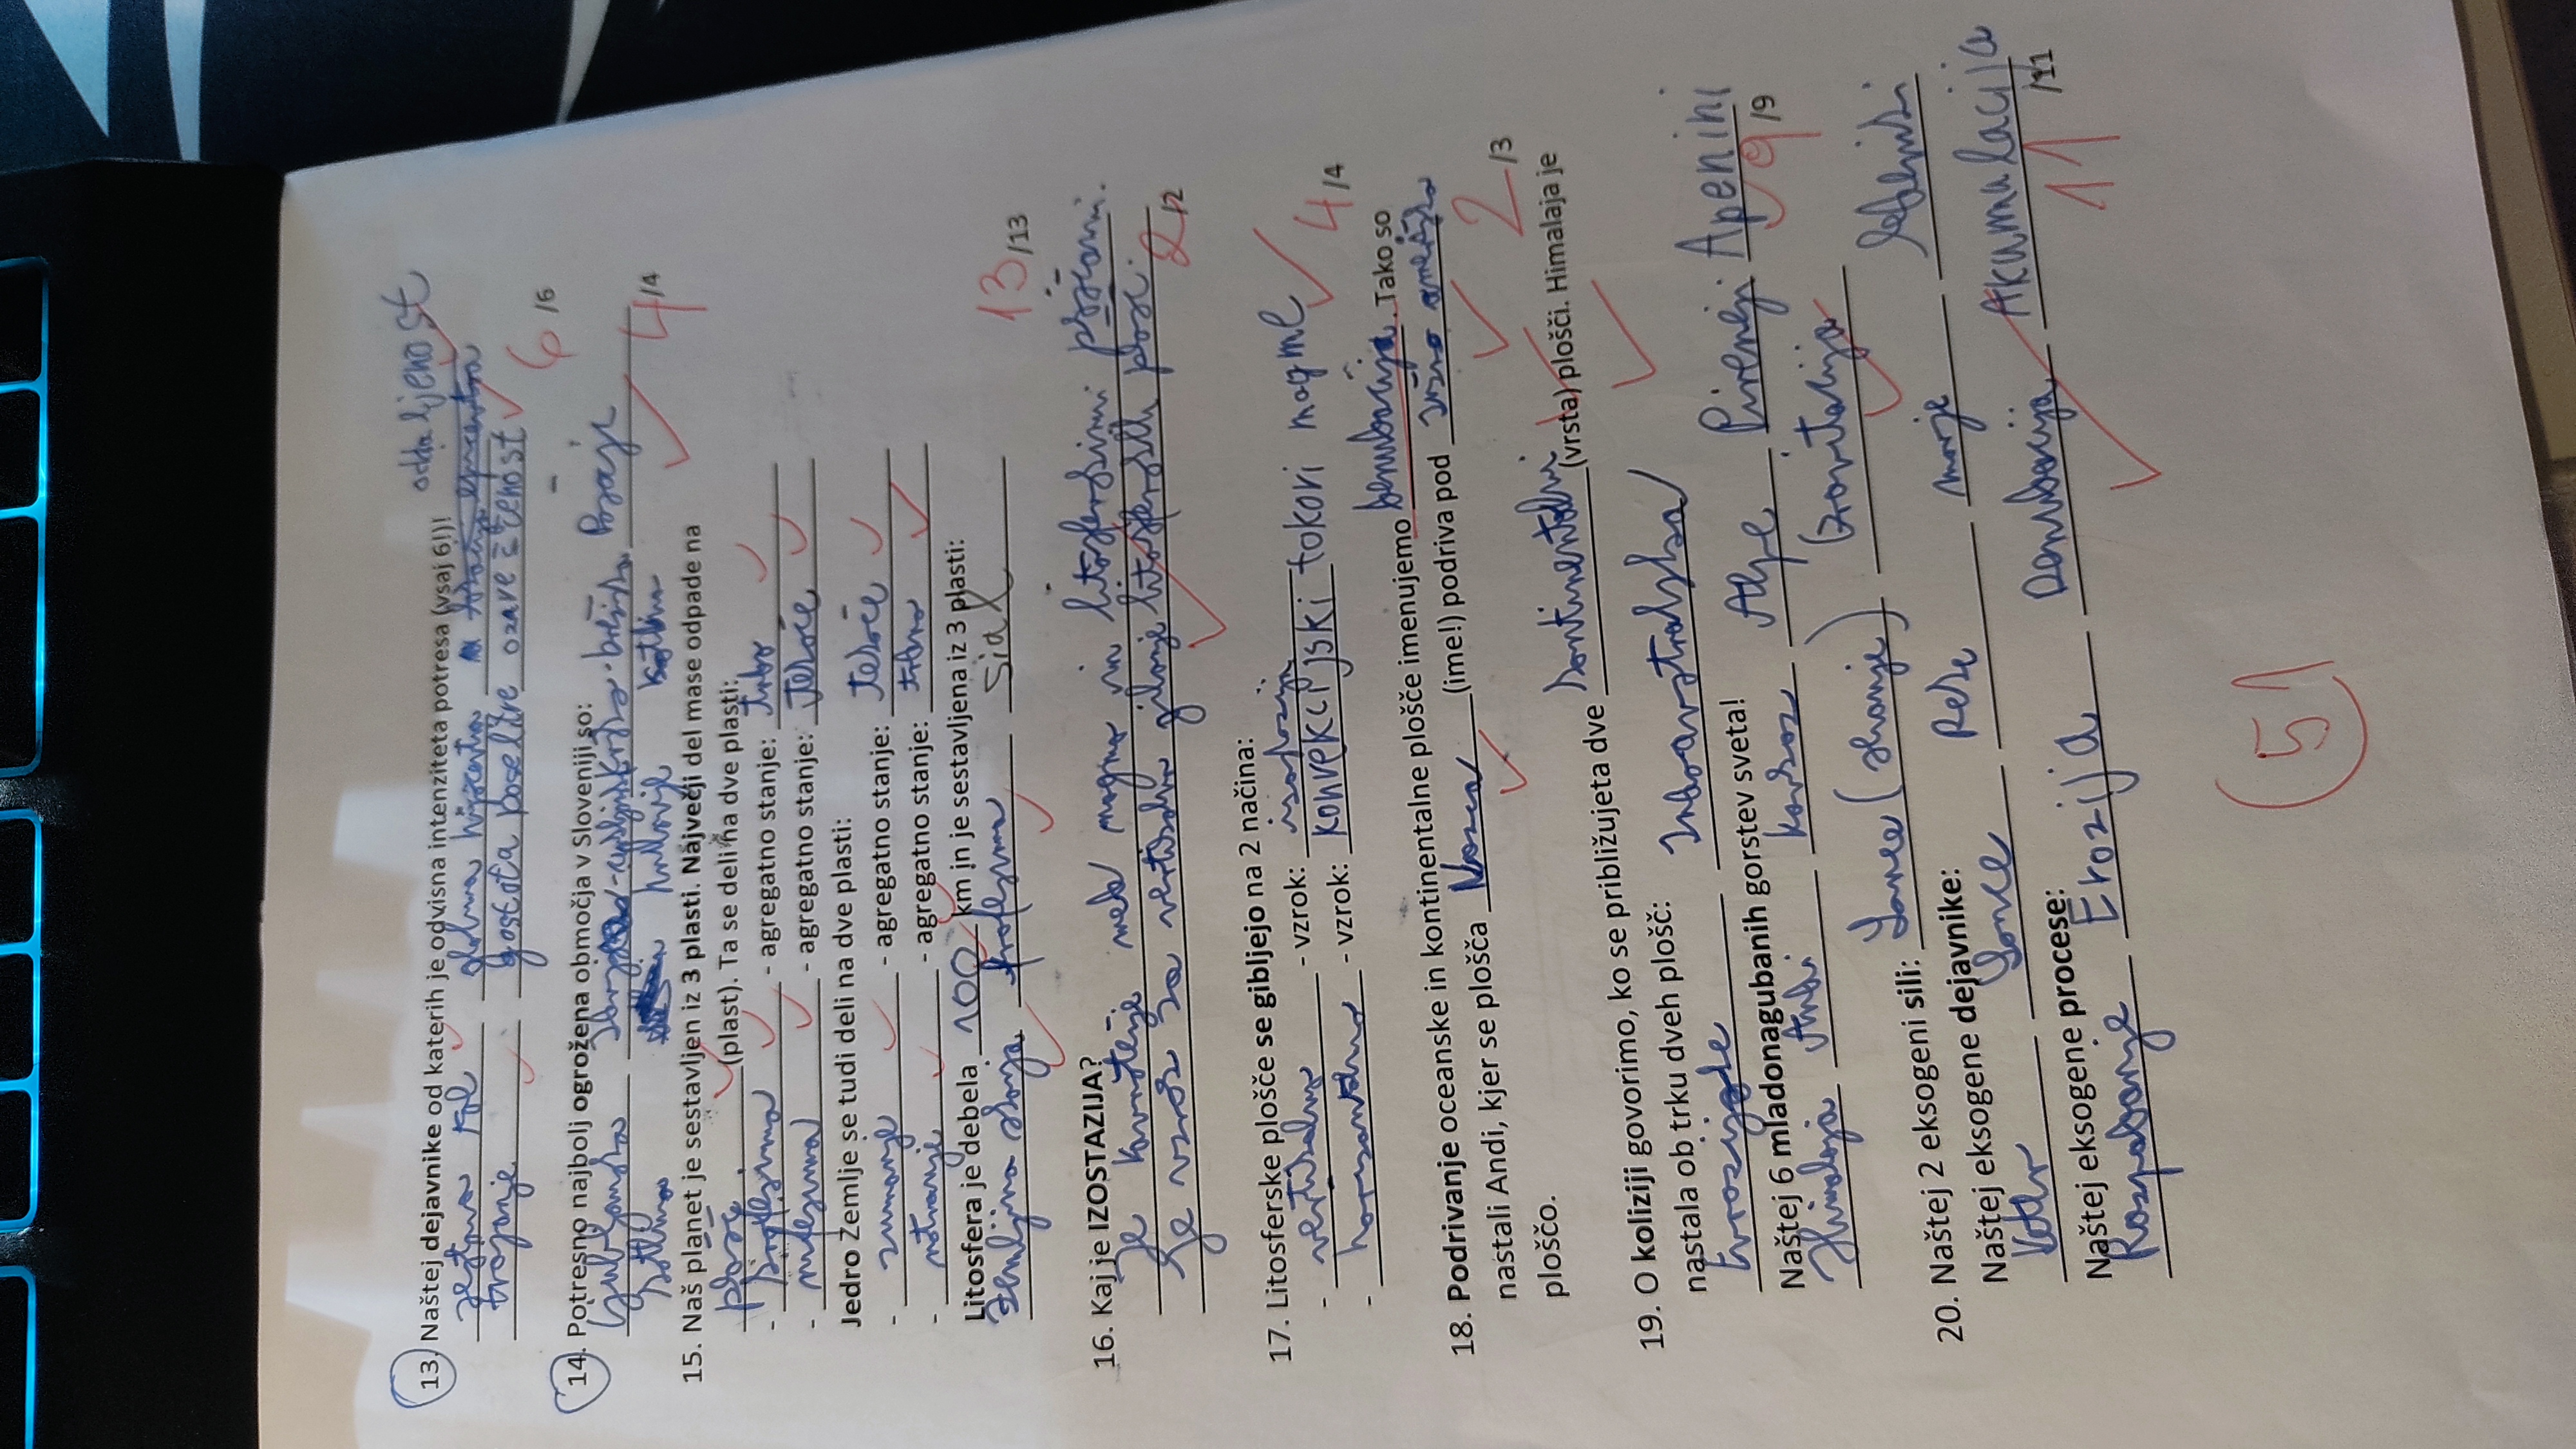 13. Naštej dejavnike od katerih je odvisna intenziteta potresa (vsaj 6!)! oddaljenost
sestava tal globina hipocentra
trajanje gostota poselitve ozaveščenost
6/6
14. Potresno najbolj ogrožena območja v Sloveniji so:
Ljubljanska Krško-brežiška Posočje
kotlina hribovje kotlina
4/4
15. Naš planet je sestavljen iz 3 plasti. Največji del mase odpade na
plašč (plast). Ta se deli na dve plasti:
- - agregatno stanje: trdo
- - agregatno stanje: tekoče
Jedro Zemlje se tudi deli na dve plasti:
- zunanje - agregatno stanje: tekoče
- notranje - agregatno stanje: trdno
Litosfera je debela 100 km in je sestavljena iz 3 plasti:
Zemljina skorja sial
13/13
16. Kaj je IZOSTAZIJA?
Je ravnotežje med magmo in litosferskimi ploščami.
Je vzrok za vertikalno gibanje litosferskih plošč.
2/2
17. Litosferske plošče se gibljejo na 2 načina:
- vertikalno - vzrok: izostazija
- horizontalno - vzrok: konvekcijski tokovi magme
4/4
18. Podrivanje oceanske in kontinentalne plošče imenujemo denudacija. Tako so
nastali Andi, kjer se plošča Nazca (ime!) podriva pod Južno ameriško
ploščo.
2/3
19. O koliziji govorimo, ko se približujeta dve kontinentalni (vrsta) plošči. Himalaja je
nastala ob trku dveh plošč:
Evrazijske Indoavstralska
Naštej 6 mladonagubanih gorstev sveta!
Himalaja Andi Kavkaz Alpe Pireneji Apenini
9/9
20. Naštej 2 eksogeni sili: Sonce (sevanje) Gravitacija
Naštej eksogene dejavnike:
Veter Sonce Reke morje ledeniki
Naštej eksogene procese:
Razpadanje Erozija Denudacija Akumulacija
11/11
51